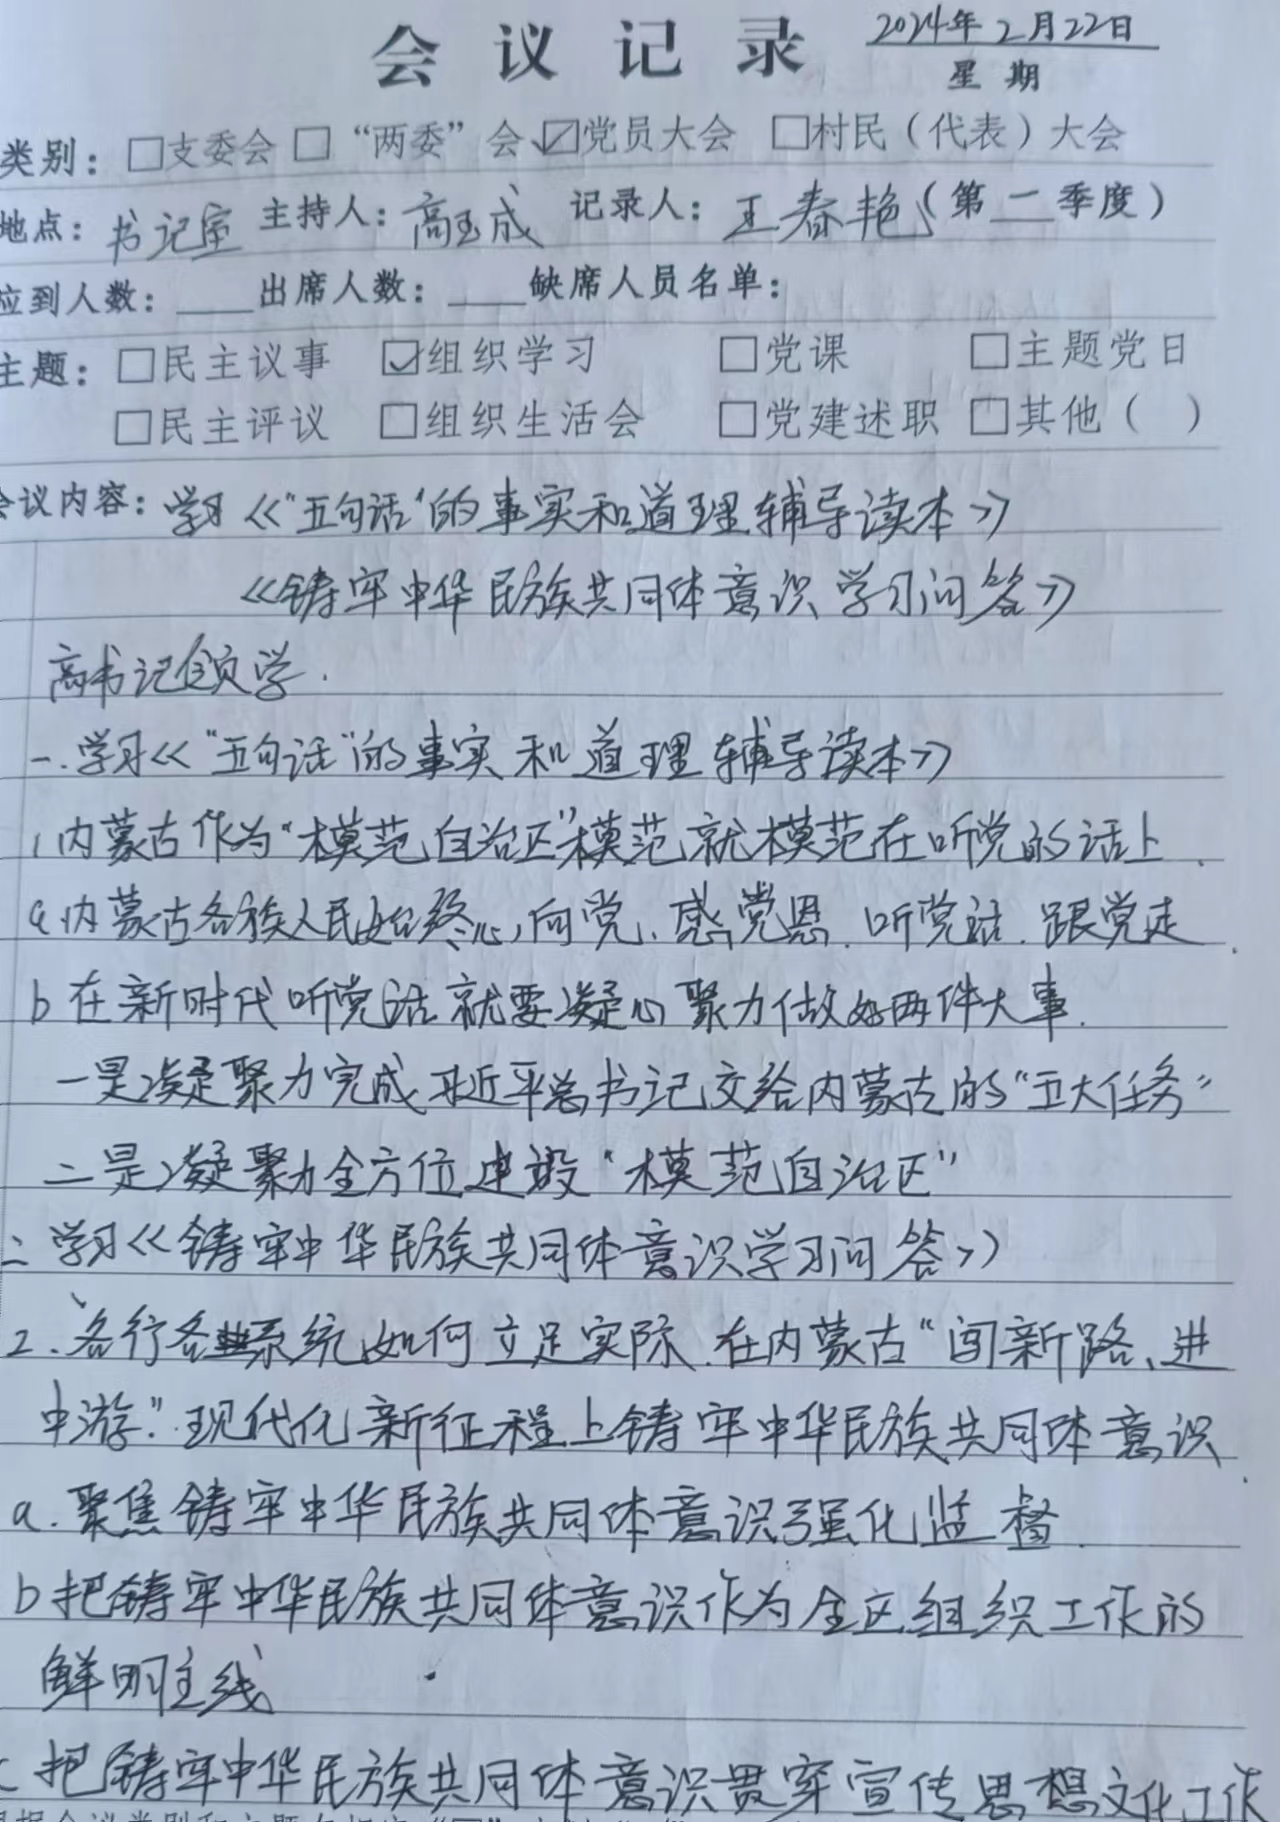 会议记录
2024年2月22日
星期
类别：□支委会 □“两委”会 ☑党员大会 □村民（代表）大会
地点：书记室 主持人：高玉成 记录人：王春艳（第二季度）
应到人数：____出席人数：____缺席人员名单：
主题：□民主议事 ☑组织学习 □党课 □主题党日
□民主评议 □组织生活会 □党建述职 □其他（ ）
会议内容：学习《“五句话”的事实和道理辅导读本》
《铸牢中华民族共同体意识学习问答》
高书记领学.
一.学习《“五句话”的事实和道理辅导读本》
1内蒙古作为“模范自治区”模范就模范在听党的话上.
a内蒙古各族人民始终心向党、感党恩.听党话.跟党走.
b在新时代听党话就要凝心聚力做好两件大事.
一是凝聚力完成习近平总书记交给内蒙古的“五大任务”
二是凝聚力全方位建设“模范自治区”
二学习《铸牢中华民族共同体意识学习问答》
2、各行各业系统如何立足实际.在内蒙古“闯新路、进
中游”.现代化新征程上铸牢中华民族共同体意识.
a.聚焦铸牢中华民族共同体意识强化监督.
b把铸牢中华民族共同体意识作为全区组织工作的
鲜明主线
c把铸牢中华民族共同体意识贯穿宣传思想文化工作